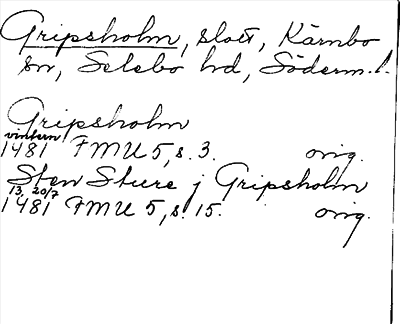 Gripsholm, slott, Kärnbo
sn, Selebo hd, Söderm. l.
Gripsholm
vintern
1481 FMU 5, s. 3. orig.
Sten Sture j Gripsholm
13, 20/7
1481 FMU 5, s. 15. orig.